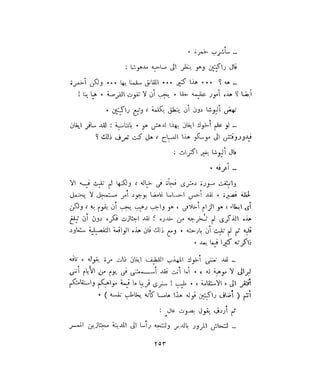 ــ سأشرب خمره ٠
قال راكيتين وهو ينظر الى صاحبه مدهوشا :
ــ هه ؟ ٠٠٠ هذا كثير ٠٠٠ القانق سقنا بها ٠٠٠ ولكن الخمرة
أيضا ! هذه أمور عظيمة حقا ٠ يجب أن لا تفوت الفرصة ٠ هيا بنا !
نهض أليوشا دون أن ينطق بكلمة ، وتبع راكيتين ٠
ــ لو علم أخوك ايفان بهذا لدهش هو ٠ بالمناسبة : لقد سافر ايفان
فيدوروفتش الى موسكو هذا الصباح ، هل كنت تعرف ذلك ؟
قال أليوشا بغير اكتراث :
ــ أعرفه ٠
وانبثقت صورة دمترى فجأة فى خياله ، ولكنها لم تلبث فيه الا
لحظة قصيرة ٠ لقد أحس احساسا غامضا بوجود أمر مستعجل لا يحتمل
أى ابطاء ، هو الزام أخلاقى ، هو واجب رهيب يجب أن يقوم به ، ولكن
هذه الذكرى لم تخرجه من خدره ؛ لقد اجتازت فكره دون أن تبلغ
قلبه ثم لم تلبث أن بارحته ٠ ومع ذلك فان هذه الواقعة التفصيلية ستعاود
ذاكرته كثيرا فيما بعد ٠
ــ لقد نعتنى أخوك المهذب اللطيف ايفان ذات مرة بقوله « تافه
ليبرالى لا موهبة له » ٠ أما أنت فقد أسمعتنى فى يوم من الأيام أننى
أفتقر الى « الاستقامة » ٠ طيب ! سنرى قريبا ما قيمة مواهبكم واستقامتكم
أنتم ( أضاف راكيتين قوله هذا هامسا كأنه يخاطب نفسه ) ٠
ثم أردف يقول بصوت عال :
ــ لنتحاش المرور بالدير ولنتجه رأسا الى المدينة مجتازين الممر
٢٥٣